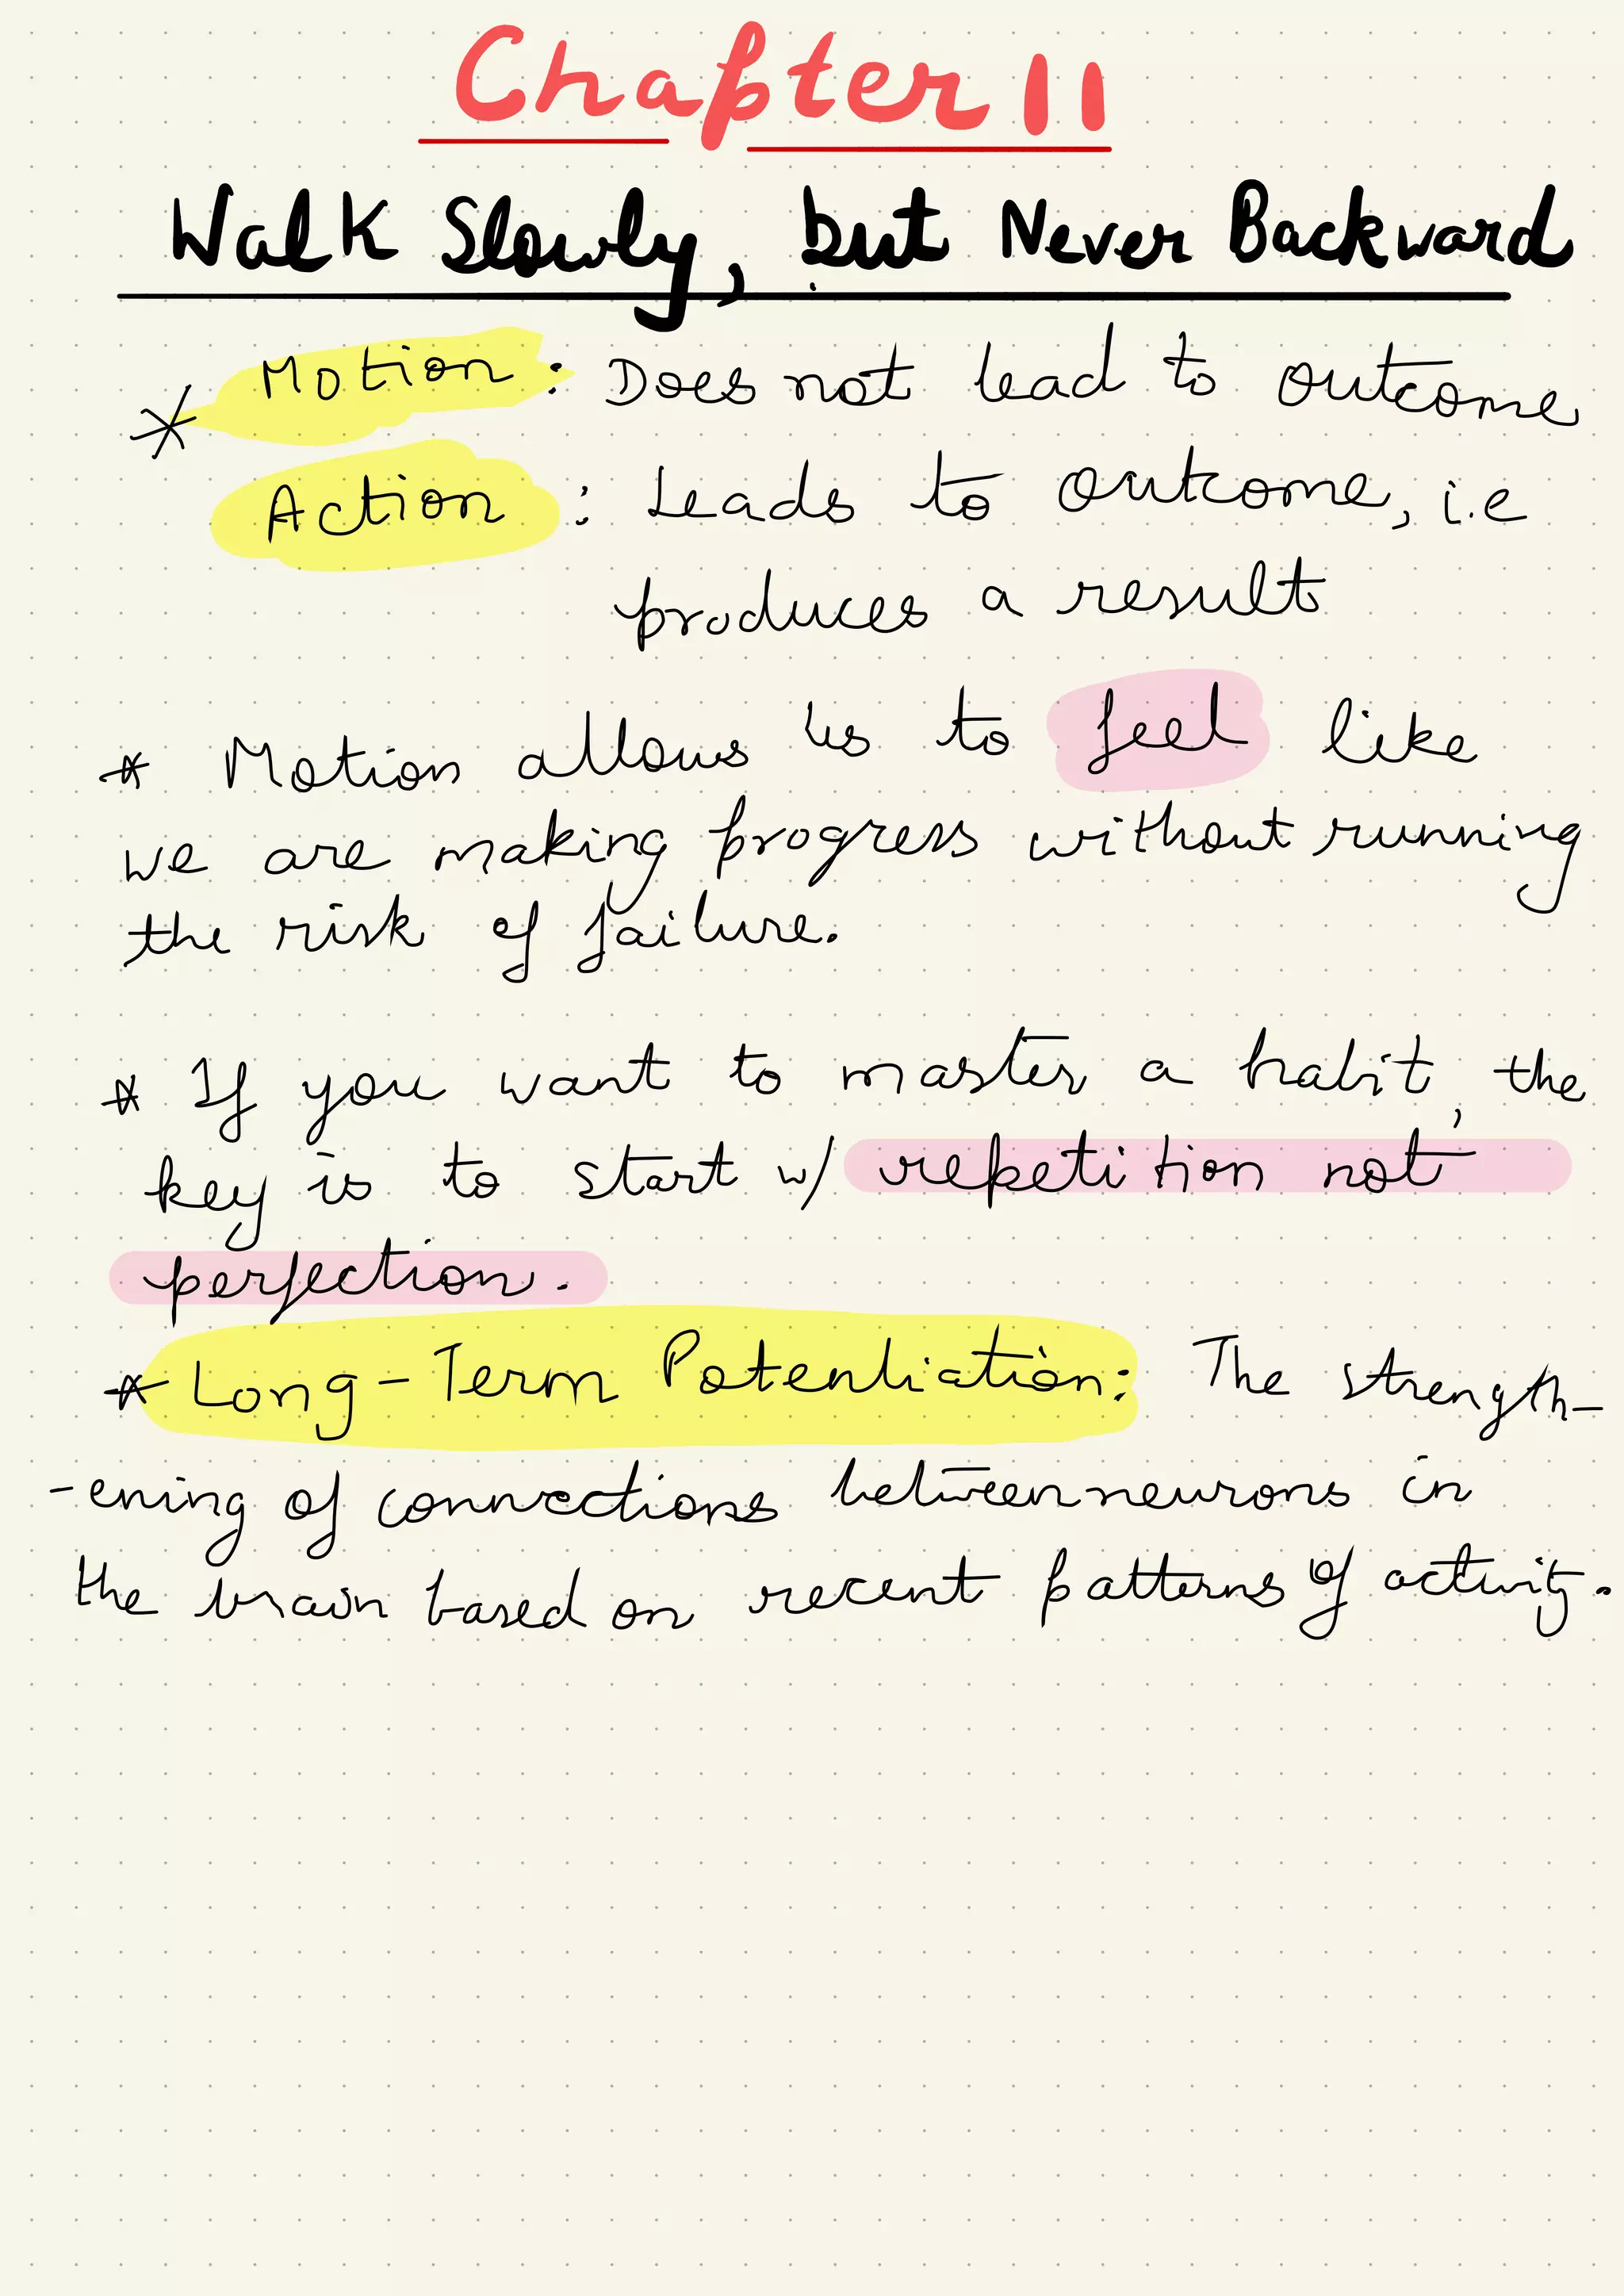 Chapter 11
Walk Slowly, but Never Backward
* Motion: Does not lead to outcome
Action: Leads to outcome, i.e
produces a result
* Motion allows us to feel like
we are making progress without running
the risk of failure.
* If you want to master a habit, the
key is to start w/ repetition not
perfection.
* Long-Term Potentiation: The strength-
-ening of connections between neurons in
the brain based on recent patterns of activity.